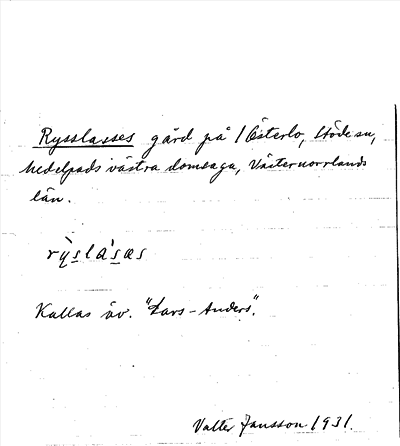 Rysslasses gård på 1 Österlo, Stöde sn,
Medelpads västra domsaga, Västernorrlands
län.
rỳslásæs
Kallas äv. "Lars-Anders".
Valter Jansson 1931.